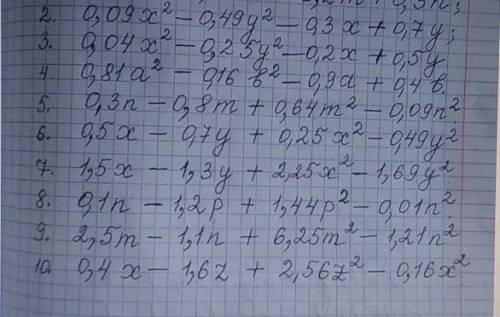 2. 0,09x² − 0,49y² − 0,3x + 0,7y;
3. 0,04x² − 0,25y² − 0,2x + 0,5y
4. 0,81a² − 0,16b² − 0,9a + 0,4b.
5. 0,3n − 0,8m + 0,64m² − 0,09n²
6. 0,5x − 0,7y + 0,25x² − 0,49y²
7. 1,5x − 1,3y + 2,25x² − 1,69y²
8. 0,1n − 1,2p + 1,44p² − 0,01n².
9. 2,5m − 1,1n + 6,25m² − 1,21n²
10. 0,4x − 1,6z + 2,56z² − 0,16x²